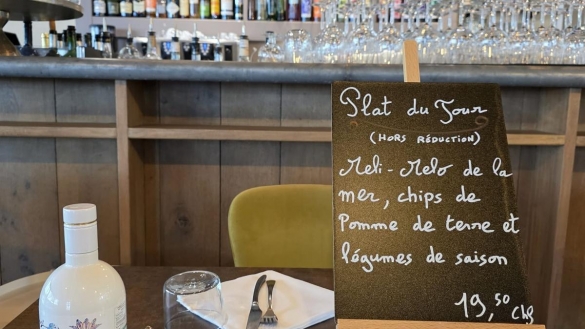 Plat du Jour
(HORS RÉDUCTION)
Meli-Melo de la
mer, chips de
Pomme de terre et
légumes de saison
19,50 CHF